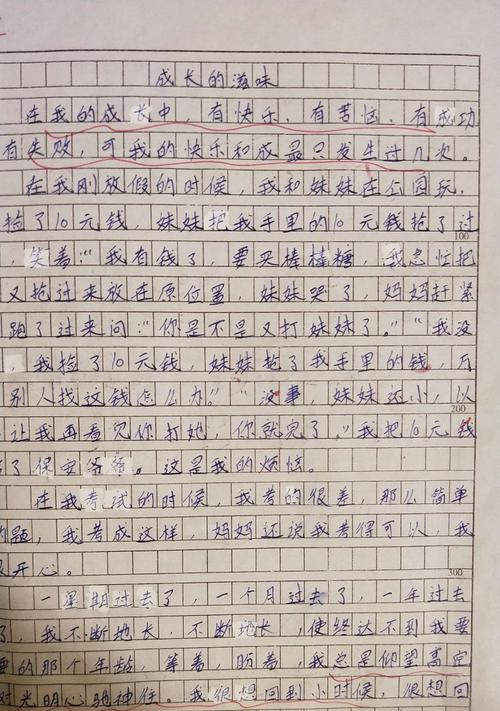 成长的滋味
在我的成长中，有快乐、有苦恼、有成功
有失败，可我的快乐和成最只发生过几次。
在我刚放假的时候，我和妹妹在公园玩，
捡了10元钱，妹妹把我手里的10元钱抢了过
100
，笑着："我有钱了，要买棒棒糖，我急忙把
又抢过来放在原位置，妹妹哭了，妈妈赶紧
跑了过来问："你是不是又打妹妹了。""我没
，我捡了10元钱，妹妹抢了我手里的钱，万
别人找这钱怎么办。""没事，妹妹还小，以
200
让我再看见你打她，你就完了。"我把10元钱
了保安爷爷。这是我的烦恼。
在我考试的时候，我考的很差，那么简单
的题，我考成这样，妈妈还说我考得可以，我
很开心。
300
一星期过去了，一个月过去了，一年过去
了，我不断地长，不断地长，使终达不到我要
要的那个年龄，等着，盼着，我总是仰望高空
对光明心驰神往。我很想回到小时候，很想回